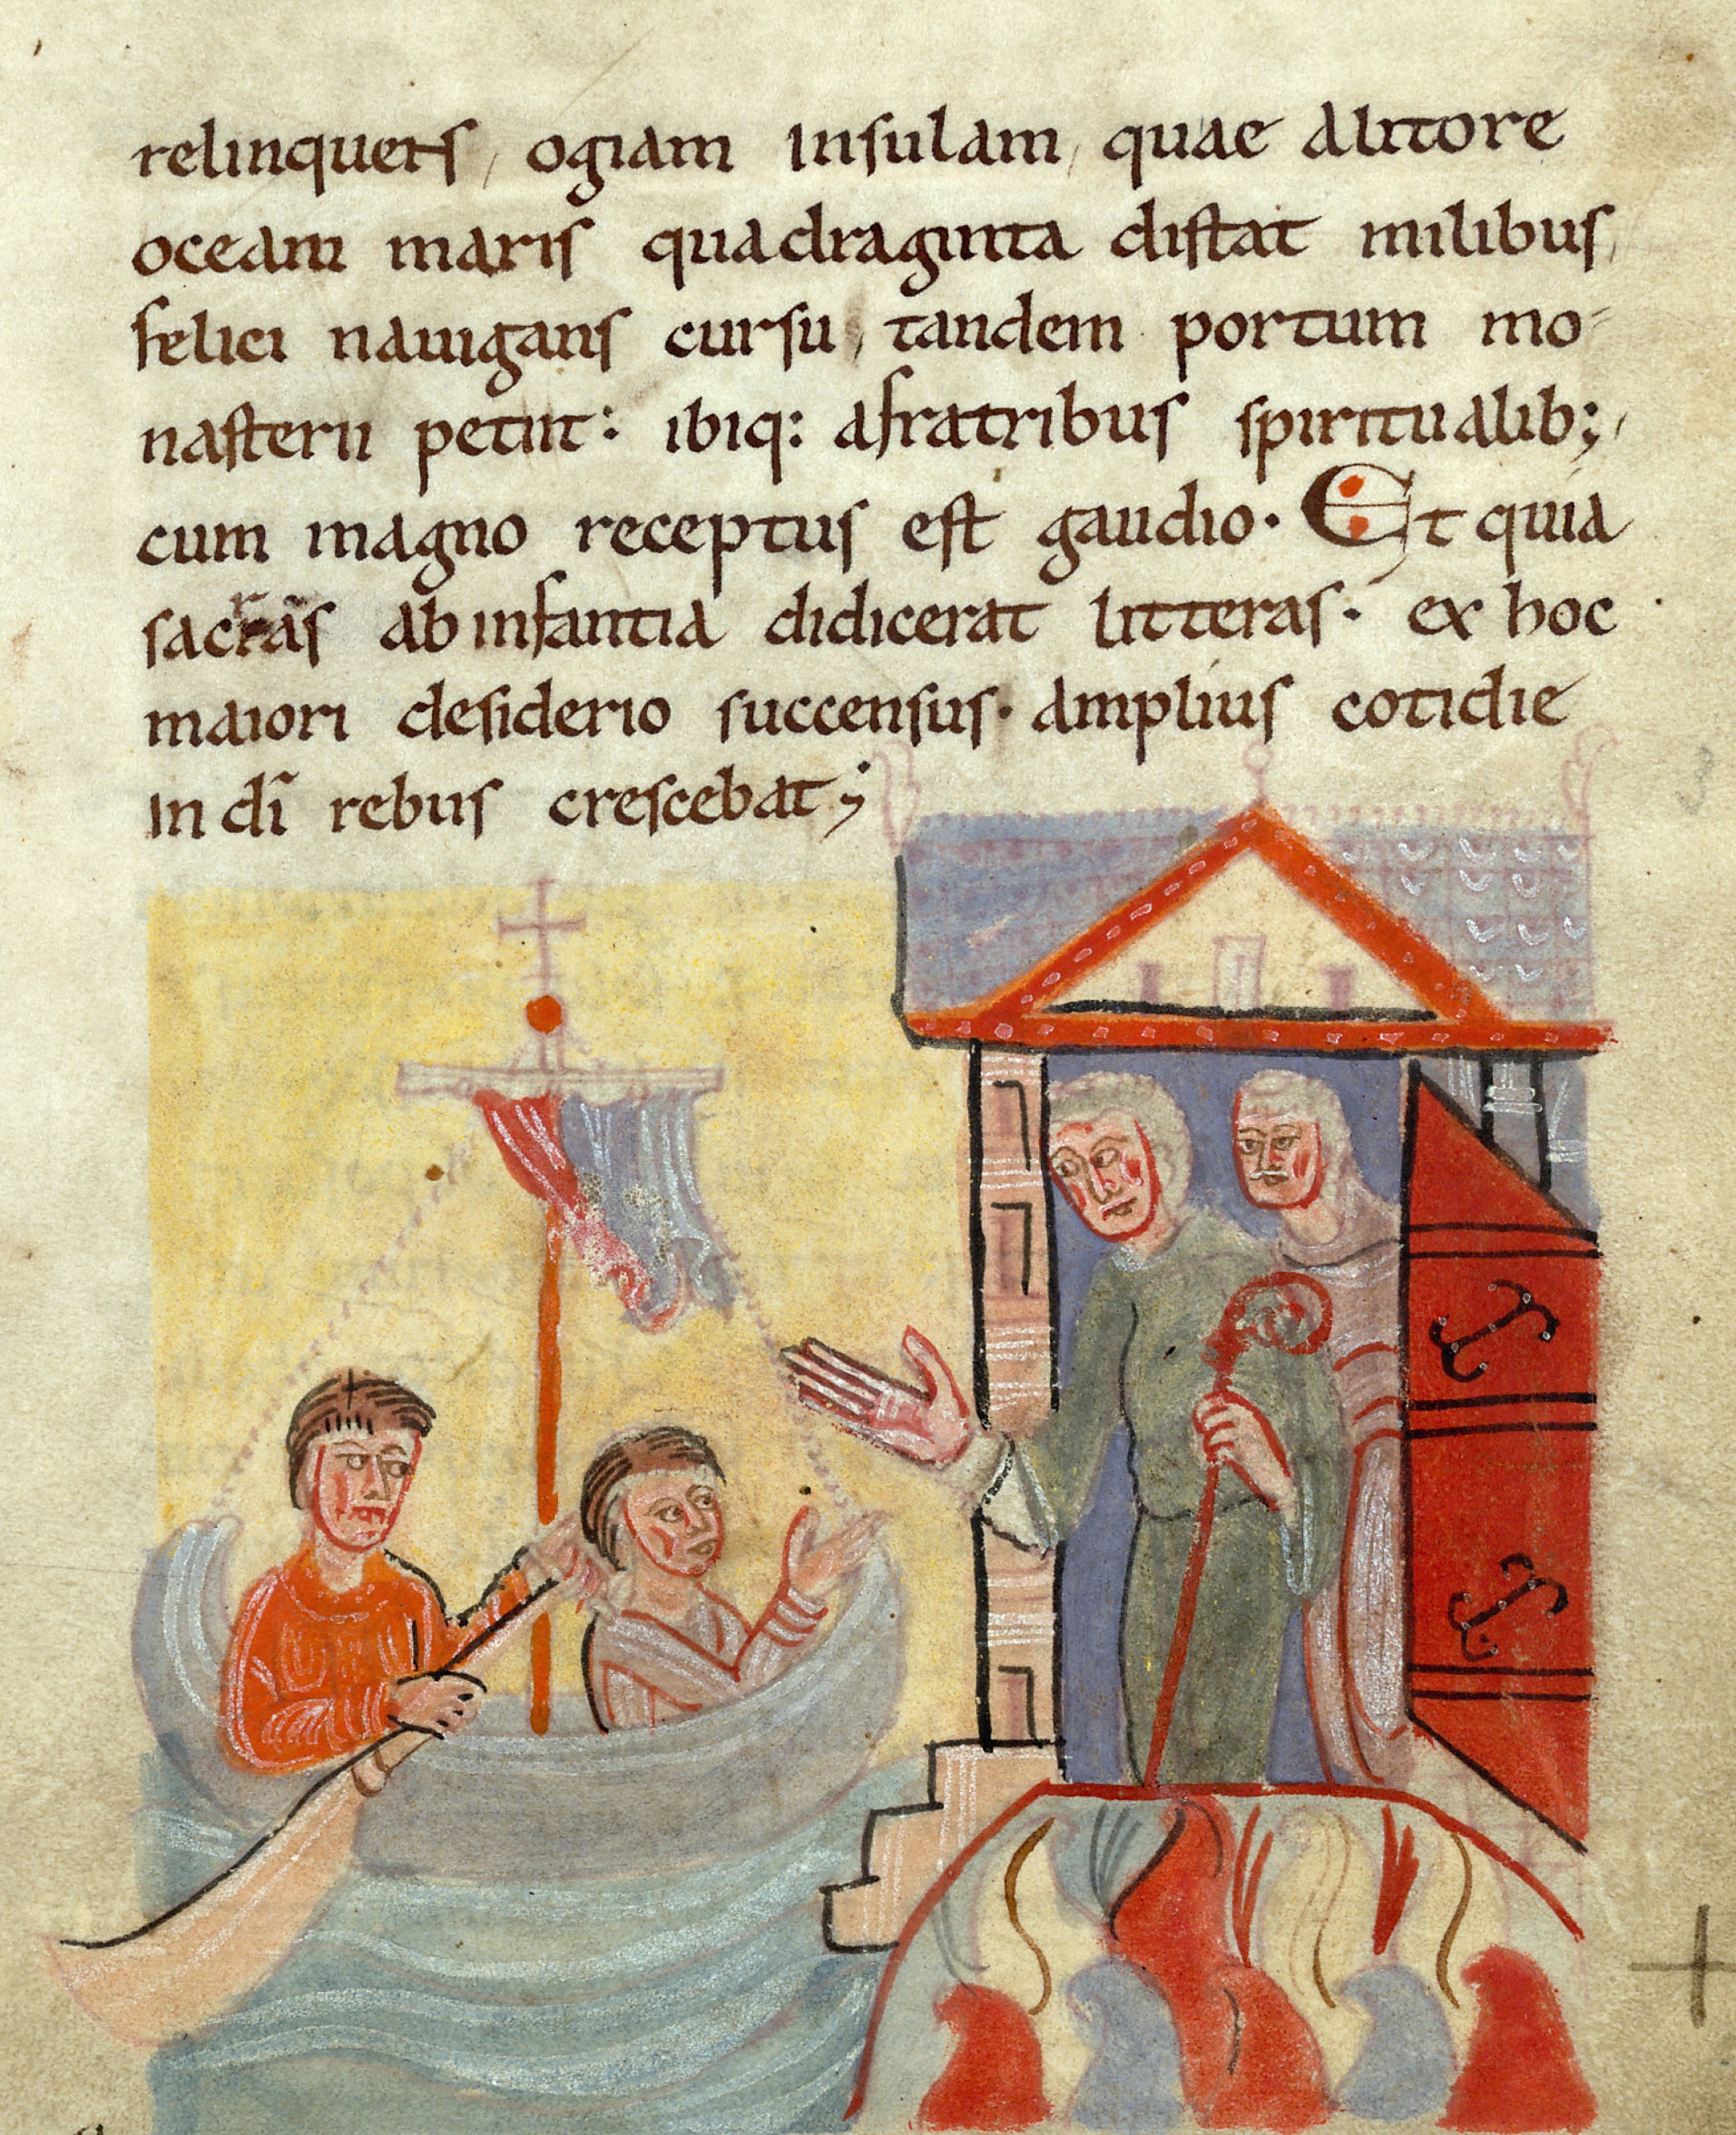 relinquens, ogiam insulam, quae a litore
oceani maris quadraginta distat milibus,
felici nauigans cursu, tandem portum mo-
nasterii petiit: ibiq: a fratribus spiritualib;,
cum magno receptus est gaudio. Et quia
sacras ab infantia didicerat litteras. ex hoc
maiori desiderio succensus. amplius cotidie
in di̅ rebus crescebat;